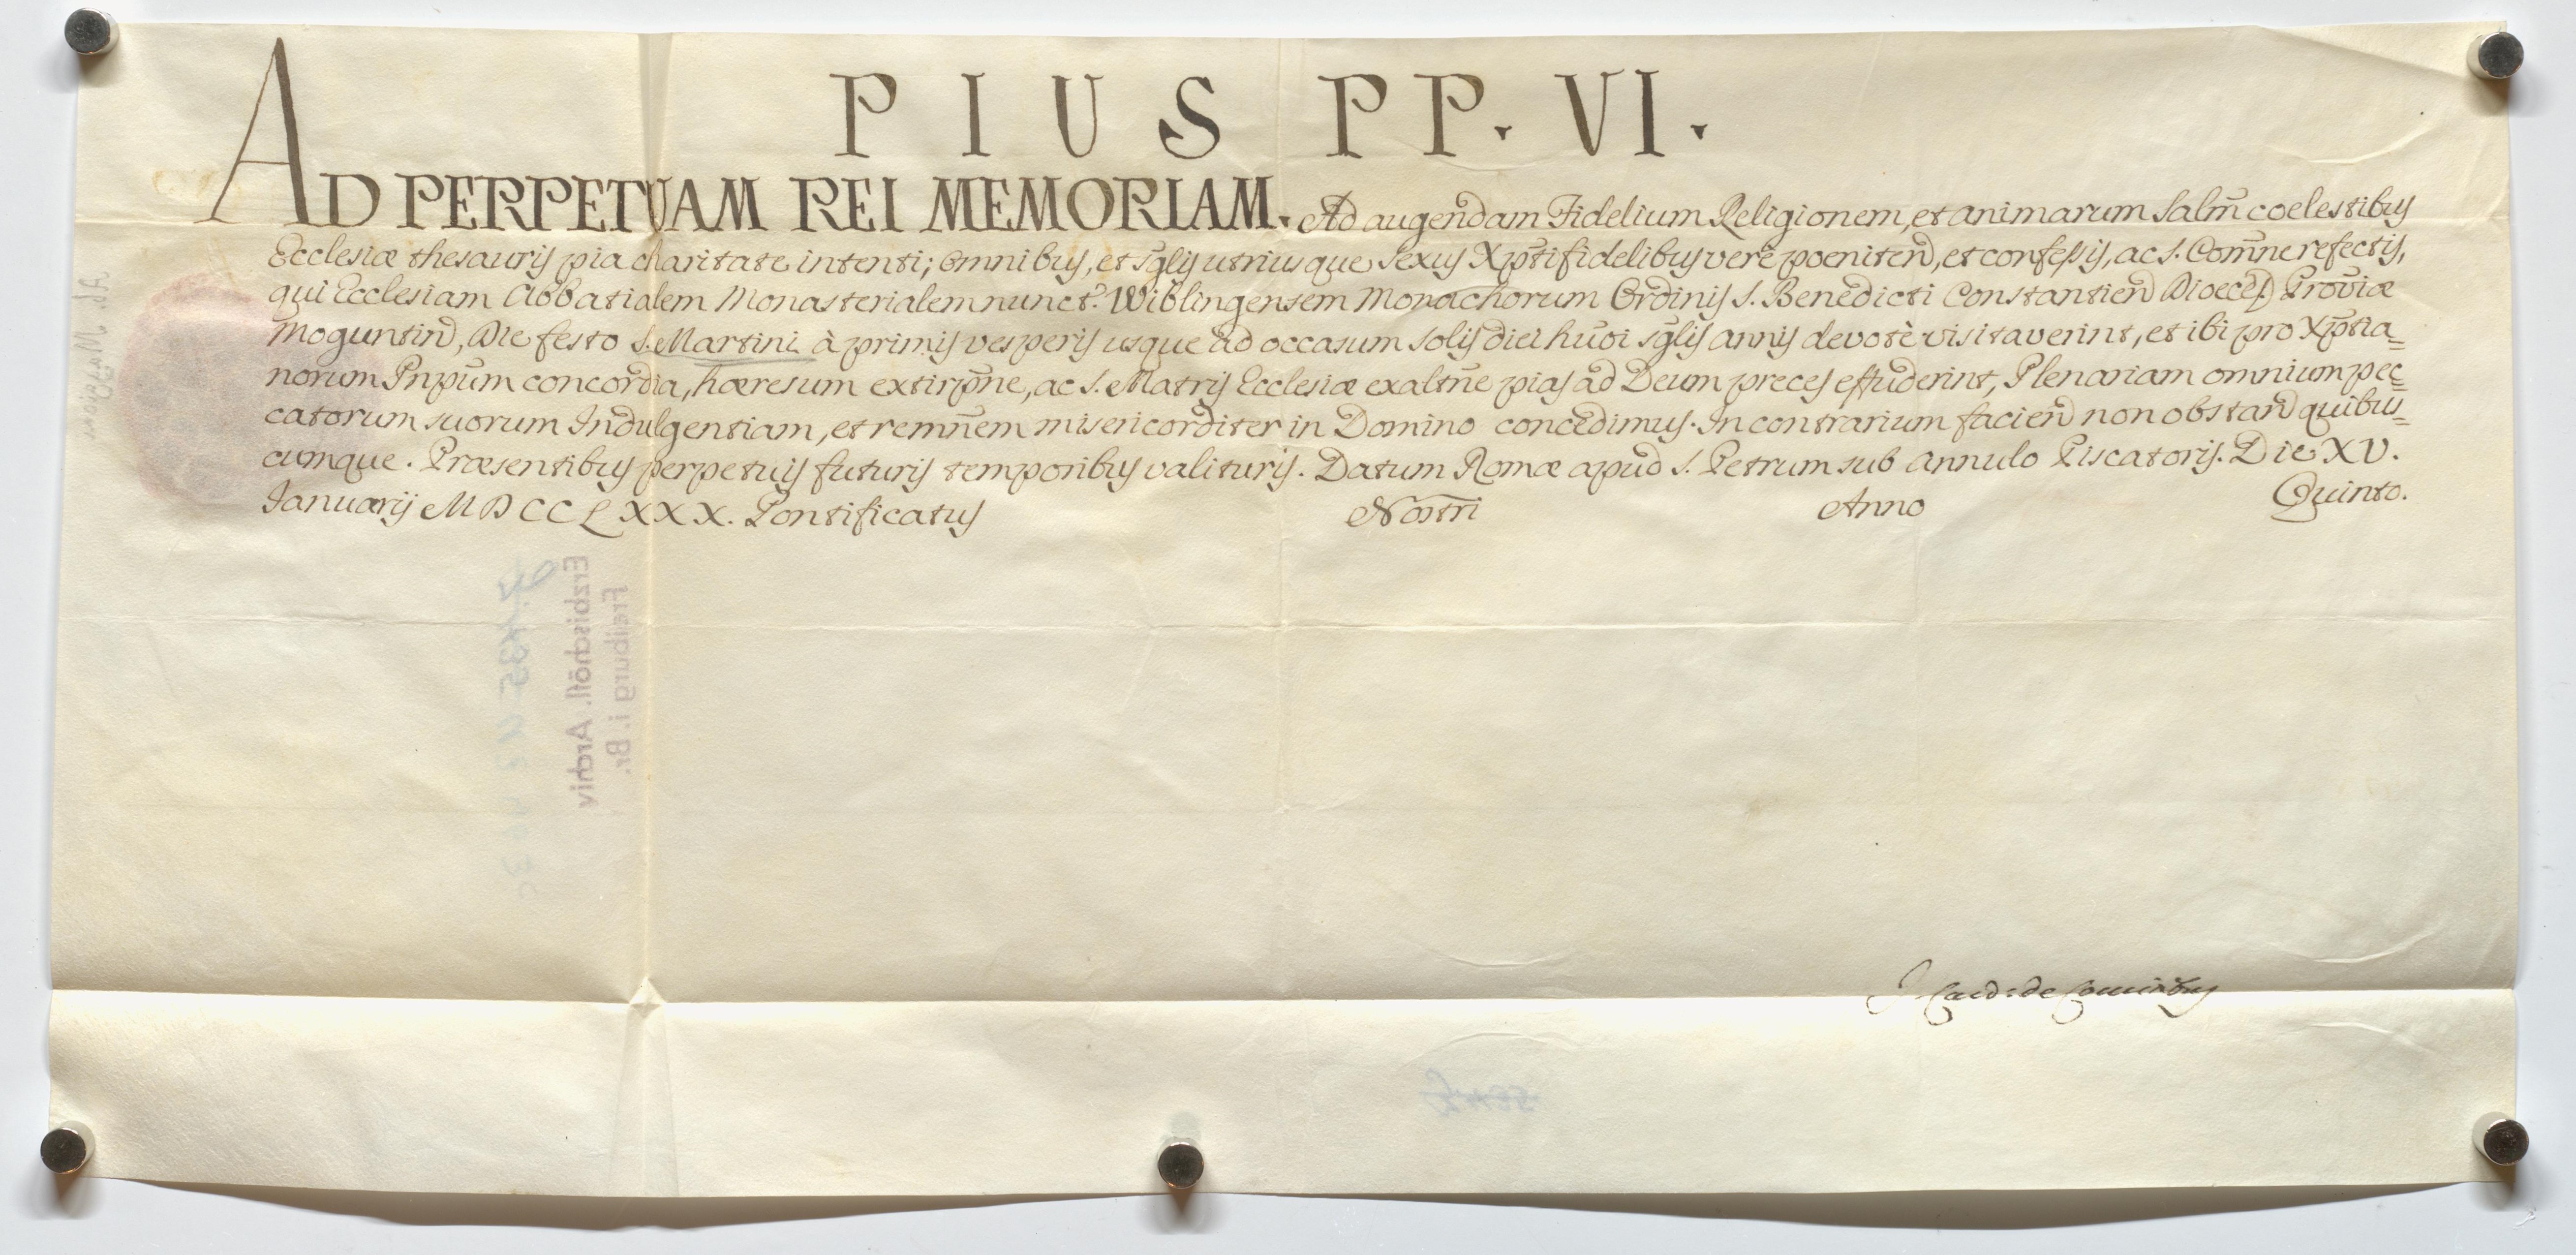 PIUS PP. VI.
AD PERPETUAM REI MEMORIAM. Ad augendam Fidelium Religionem, et animarum Salm̄ coelestibus
Ecclesiæ thesauris pia charitate intenti; omnibus, et sḡlis utriusque sexus Xpt̄ifidelibus verè poeniteñ, et confessis, ac S. Com̄ne refectis,
qui Ecclesiam Abbatialem Monasterialem nunct. Wiblingensem Monachorum Ordinis S. Benedicti Constantień Diœceś Prov̄iæ
Moguntiñ, Die festo S. Martini à primis vesperis usque ad occasum solis diei hūoi sḡlis annis devotè visitaverint, et ibi pro Xpt̄ia=
norum Pnp̄um concordia, hæresum extirp̄ne, ac S. Matris Ecclesiæ exalt̄ne pias ad Deum preces effuderint, Plenariam omnium pec=
catorum suorum Indulgentiam, et remn̄em misericorditer in Domino concedimus. In contrarium facień non obstań quibus=
cumque. Præsentibus perpetuis futuris temporibus valituris. Datum Romæ apud S. Petrum sub Annulo Piscatoris. Die XV.
Januarij MDCCLXXX. Pontificatus Nostri Anno Quinto.
Erzbischöfl. Archiv
Freiburg i. Br.
J. Card: de Comitibus